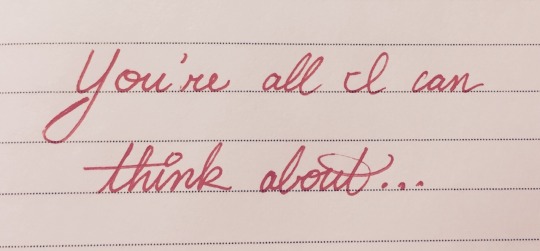 You're all I can
think about...